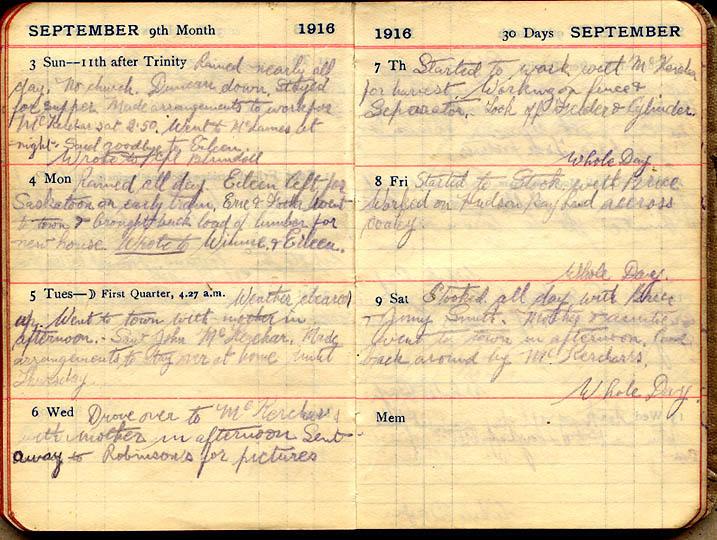 SEPTEMBER 9th Month 1916
3 Sun—11th after Trinity Rained nearly all
day. No church. Duncan down, stayed
for supper. Made arrangements to work for
McKerchar sat 2.50. Went to McLames at
night. Said goodbye to Eileen.
Wrote to Blundell
4 Mon Rained all day. Eileen left for
Saskatoon on early train, went
to town & brought back load of lumber for
new house. Wrote to Winnie, & Eileen.
5 Tues—☽ First Quarter, 4.27 a.m. Weather cleared
up. Went to town with mother in
afternoon. Saw John McKerchar. Made
arrangements to stay over at home until
Thursday
6 Wed Drove over to McKerchar's
with mother in afternoon Sent
away to Robinson's for pictures
1916 30 Days SEPTEMBER
7 Th Started to work with McKerchar
for harvest. Working on fence &
Seperator. Took off Feeder & Cylinder.
Whole Day
8 Fri Started to Stook with Bruce
Worked on Hudson Bay land accross
Whole Day.
9 Sat Stooked all day with Bruce
& Jimy Smith. Mother & auntie
went to town in afternoon, &
back around by McKerchar's.
Whole Day.
Mem